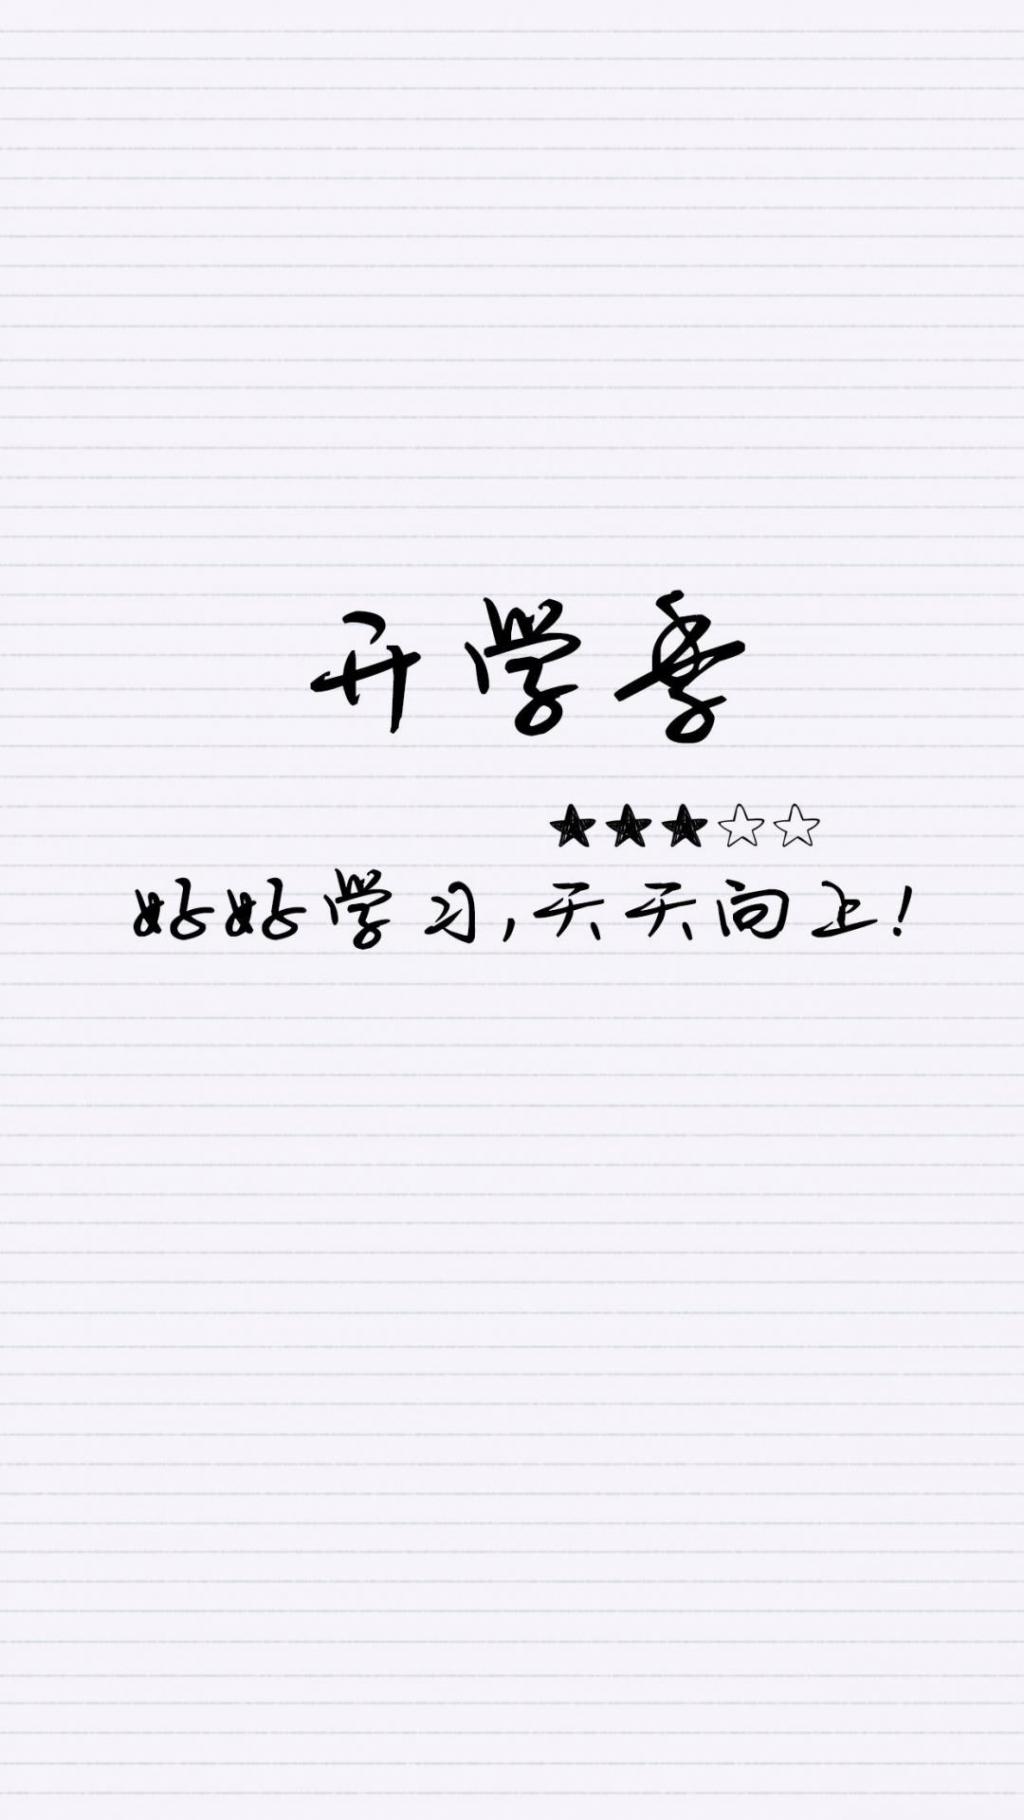 开学季
★★★☆☆
好好学习,天天向上!